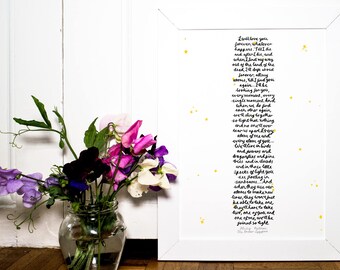 I will love you
forever, whatever
happens. Till I die
and after I die, and
when I find my way
out of the land of the
dead, I'll drift about
forever, all my
atoms, till I find you
again... I'll be
looking for you,
every moment, every
single moment. And
when we do find
each other again,
we'll cling together
so tight that nothing
and no one'll ever
tear us apart. Every
atom of me and
every atom of you...
We'll live in birds
and flowers and
dragonflies and pine
trees and in clouds
and in those little
specks of light you
see floating in
sunbeams... And
when they use our
atoms to make new
lives, they won't just
be able to take one,
they'll have to take
two, one of you and
one of me, we'll be
joined so tight.